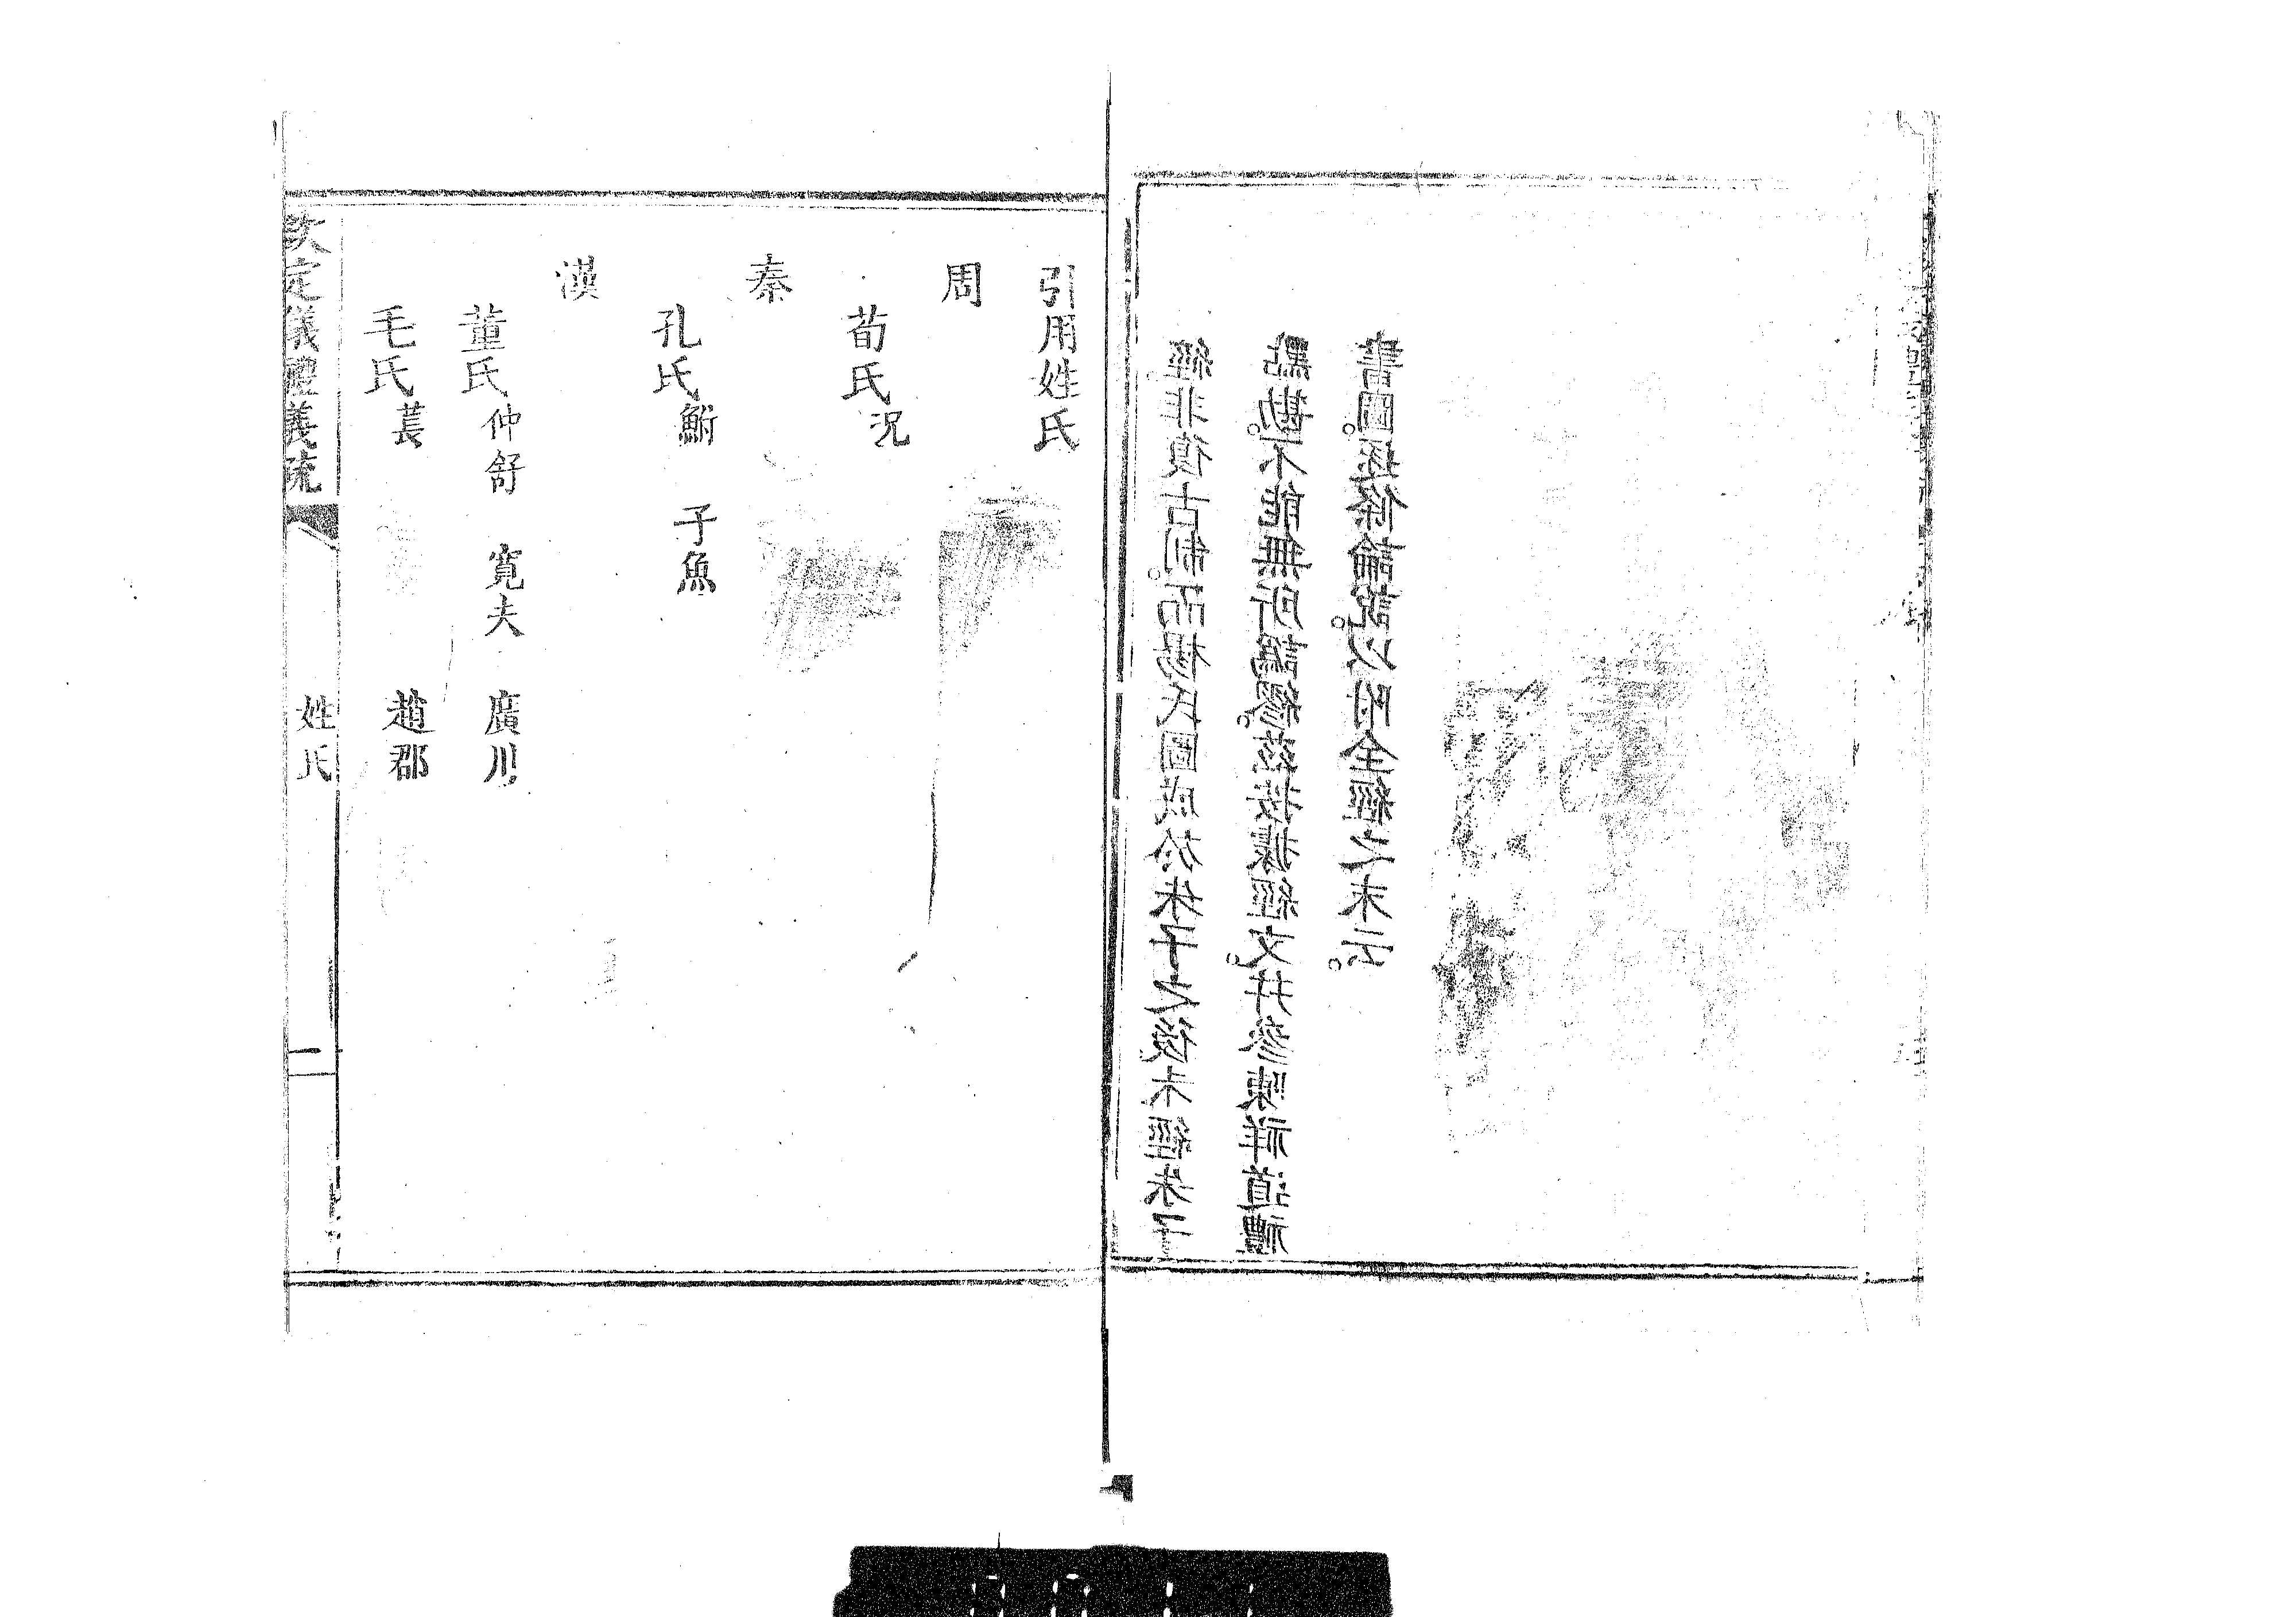 經。非復古制。而楊氏圖成於朱子之後未經朱子
點勘。不能無所譌繆。茲按據經文。并參陳祥道禮
書圖。逐條論說。以附全經之末云。
引用姓氏
周
荀氏況
秦
孔氏鮒 子魚
漢
董氏仲舒 寬夫 廣川
毛氏萇 趙郡
欽定儀禮義疏 姓氏 一